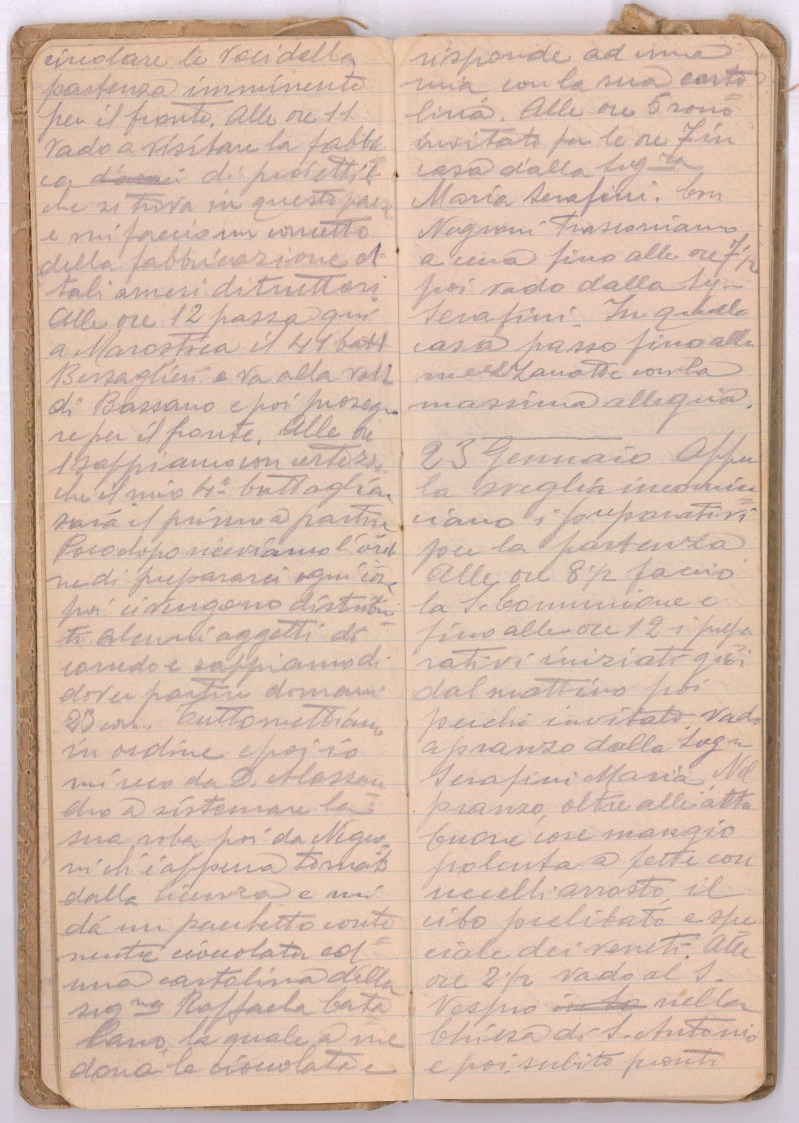 circolare le voci della
partenza imminente
per il fronte. Alle ore 11
vado a visitare la fabbri
ca di proiettili
che si trova in questo paese
e mi faccio un concetto
della fabbricazione di
tali arnesi distruttori
Alle ore 12 passa qui
a Marostica il 44 batt
Bersaglieri e va alla volta
di Bassano e poi prosegue
re per il fronte. Alle ore
sappiamo con certezza
che il mio 4° battaglion
sarà il primo a partire
Poco dopo riceviamo l'ordi
ne di prepararci ogni cosa
poi ci vengono distribui
ti alcuni oggetti di
corredo e sappiamo di
dover partire domani
23 corr. Tutto mettiamo
in ordine e poi io
mi reco da D. Alessan
dro a sistemare la
sua roba poi da Negro
ni ch'è appena tornato
dalla licenza e mi
dà un pacchetto conte
nente cioccolata ed
una cartolina della
sig.na Raffaela Cata
lano la quale a me
dona la cioccolata e
risponde ad una
mia con la sua carto
lina. Alle ore 5 sono
invitato per le ore 7 in
casa dalla Sig.ra
Maria Serafini. Con
Negroni trascorriamo
a cena fino alle ore 7½
poi vado dalla Sig.
Serafini. In quella
casa passo fino alla
mezzanotte con la
massima allegria.
23 Gennaio Appena
la sveglia incomin
ciano i preparativi
per la partenza
Alle ore 8½ faccio
la S. Comunione e
fino alle ore 12 i prepa
rativi iniziati già
dal mattino poi
perché invitato vado
a pranzo dalla Sig.
Serafini Maria. Nel
pranzo oltre alle altre
buone cose mangio
polenta a fette con
uccelli arrosto il
cibo prelibato e spe
ciale dei veneti. Alle
ore 2½ vado al S.
Vespro in la nella
Chiesa di S. Antonio
e poi subito pronti